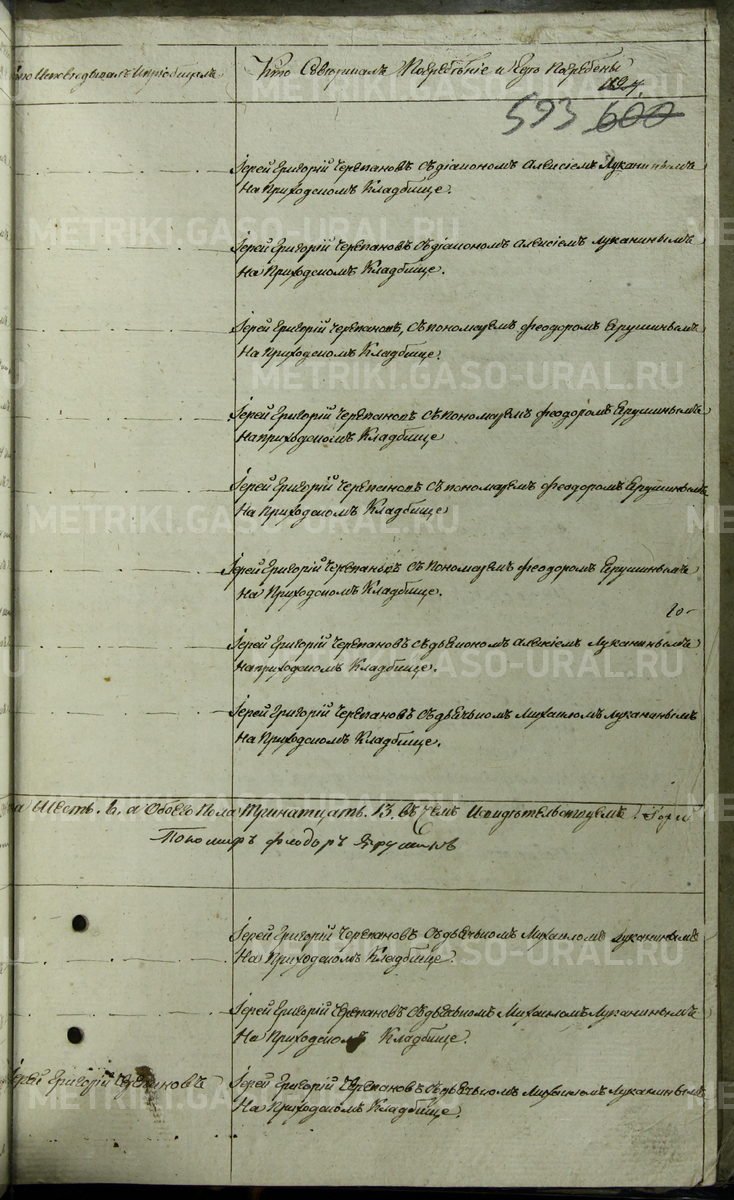 Кто Исповедывалъ и приобщалъ
Кто Совершалъ Погребѣніе и гдѣ Погребены
593 600
Іерей Григорій Черепановъ съ діакономъ Алексіемъ Луканинымъ
На Приходскомъ Кладбище.
Іерей Григорій Черепановъ съ діакономъ Алексіемъ Луканинымъ
На Приходскомъ Кладбище.
Іерей Григорій Черепановъ, съ пономаремъ Феодоромъ Ерушинымъ
На Приходскомъ Кладбище.
Іерей Григорій Черепановъ съ пономаремъ Феодоромъ Ерушинымъ
На приходскомъ Кладбище
Іерей Григорій Черепановъ съ пономаремъ Феодоромъ Ерушинымъ
На Приходскомъ Кладбище
Іерей Григорій Черепановъ съ Пономаремъ Феодоромъ Ерушинымъ
На Приходскомъ Кладбище.
Іерей Григорій Черепановъ съ дьякономъ Алексіемъ Луканинымъ
На приходскомъ Кладбище.
Іерей Григорій Черепановъ съ дьячкомъ Михаиломъ Луканинымъ
На Приходскомъ Кладбище.
а Шесть. 6. а Обоего Пола Тринатцать. 13. въ чемъ И свидѣтельствуемъ
Пономарь Феодоръ Ерушинъ
Іерей Григорій Черепановъ съ дьячкомъ Михаиломъ Луканинымъ
На Приходскомъ Кладбище.
Іерей Григорій Черепановъ съ дьячкомъ Михаиломъ Луканинымъ
На Приходскомъ Кладбище.
Іерей Григорій Черепановъ
Іерей Григорій Черепановъ съ дьячкомъ Михаиломъ Луканинымъ
На Приходскомъ Кладбище.
METRIKI.GASO-URAL.RU